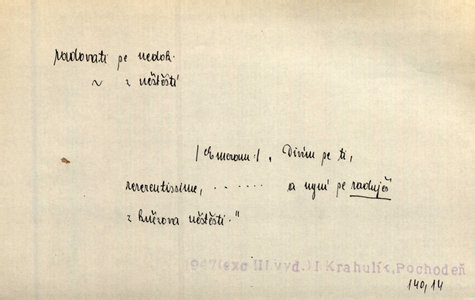 radovati se nedok.
~ z neštěstí
/Emeram:/ „Divím se ti,
reverentissime, ...... a nyní se raduješ
z knězova neštěstí."
1947(exc III.vyd.) I Krahulík, Pochodeň
140,14